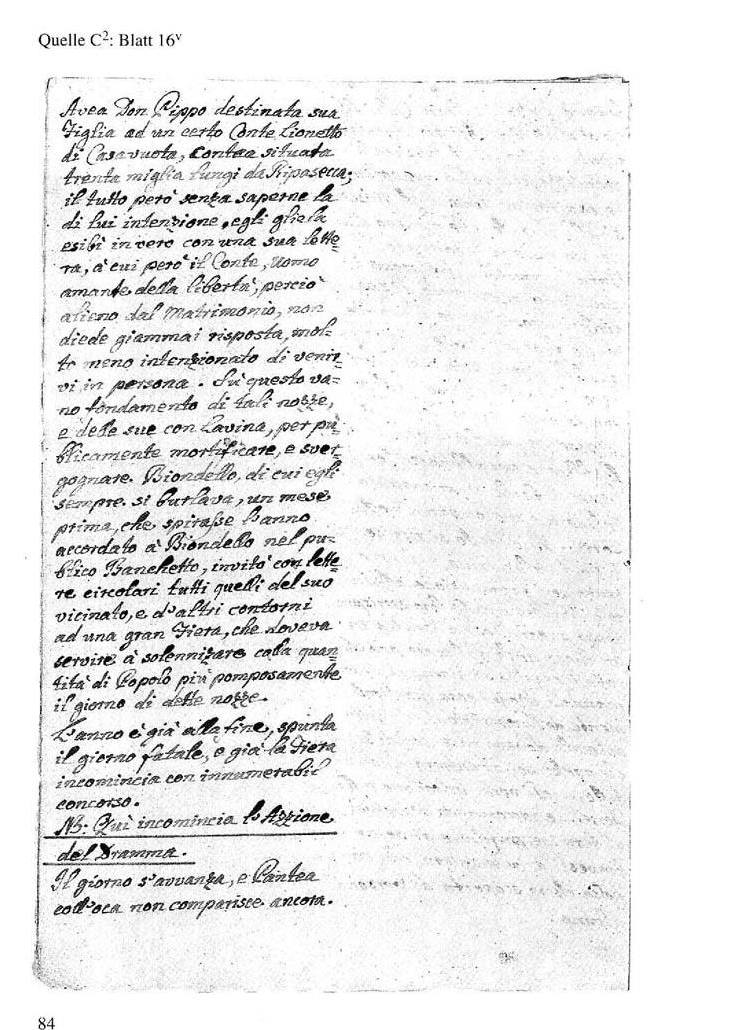 Quelle C²: Blatt 16ᵛ
Avea Don Pippo destinata sua
Figlia ad un certo Conte Lionetto
di Casavuota, Contea situata
trenta miglia lungi da Ripasecca;
il tutto però senza saperne la
di lui intenzione, egli gliela
esibì in vero con una sua lette=
ra, à cui però il Conte, Uomo
amante della libertà, perciò
alieno dal Matrimonio, non
diede giammai risposta, mol=
to meno intenzionato di venir=
vi in persona. Sù questo va=
no fondamento di tali nozze,
e delle sue con Lavina, per pu=
blicamente mortificare, e sver=
gognare Biondello, di cui egli
sempre si burlava, un mese
prima, che spirasse l'anno
accordato à Biondello nel pu=
blico Banchetto, invitò con lette=
re circolari tutti quelli del suo
vicinato, e d'altri contorni
ad una gran Fiera, che doveva
servire à solennizare colla quan=
tità di Popolo più pomposamente
il giorno di dette nozze.
L'anno è già alla fine, spunta
il giorno fatale, e già la Fiera
incomincia con innumerabil
concorso.
NB: Quì incomincia l'Azzione
del Dramma.
Il giorno s'avvanza, e Pantea
coll'oca non comparisce ancora.
84